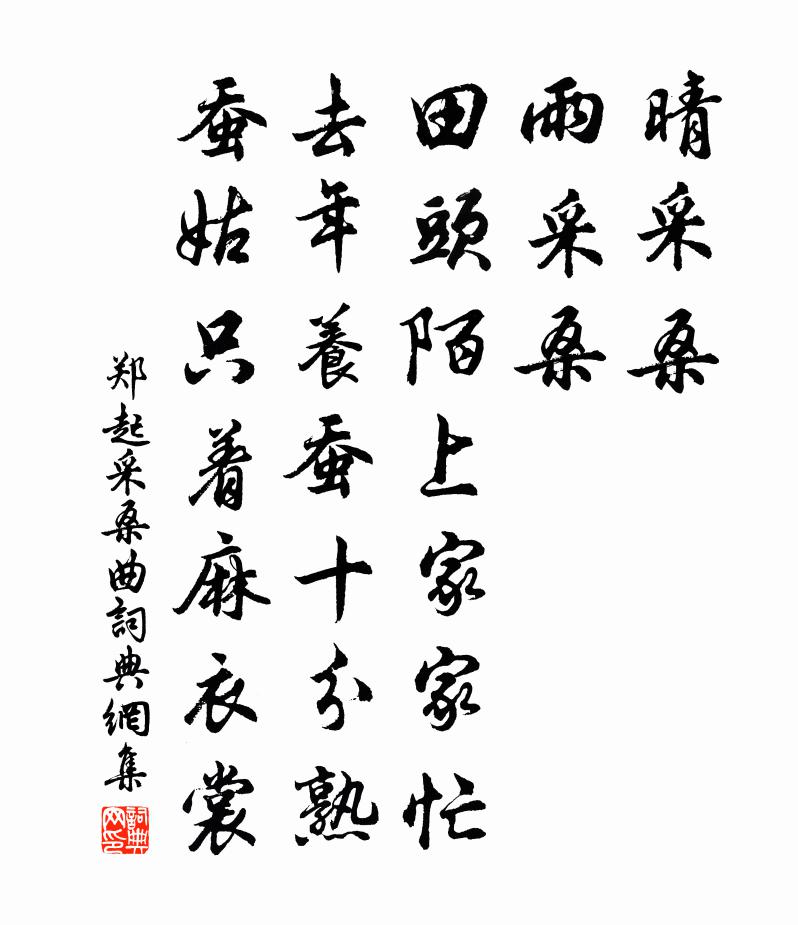 晴采桑
雨采桑
田頭陌上家家忙
去年養蚕十分熟
蚕姑只着麻衣裳
郑起采桑曲詞典網集
詞典网印